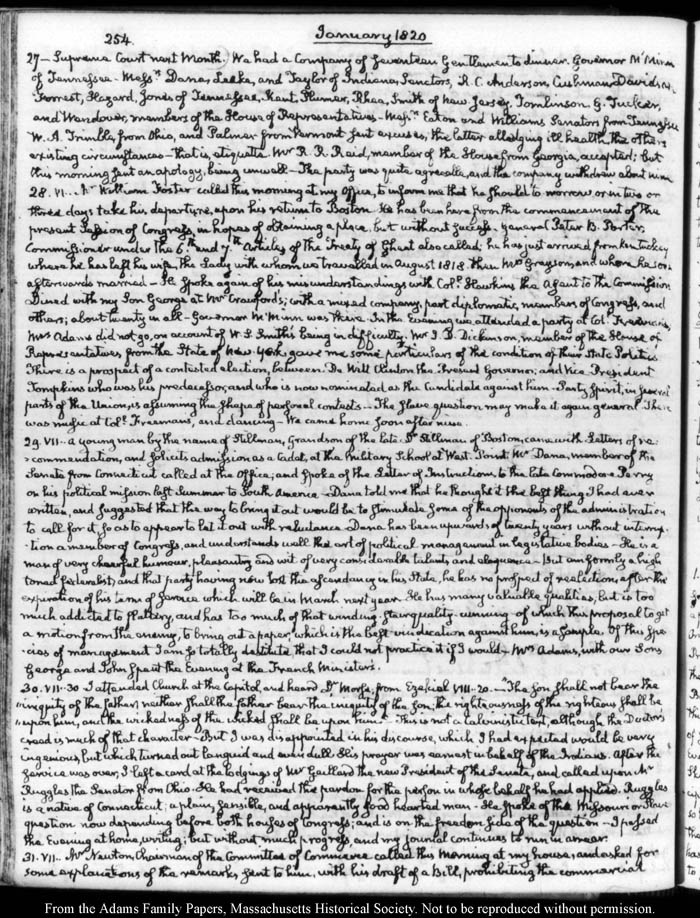 254
January 1820
27— Supreme Court next Month. We had a Company of seventeen Gentlemen to dinner. Governor McMinn
of Tennessee— Messrs. Dana, Leake, and Taylor of Indiana, Senators, R. C. Anderson, Cushman, Davidson,
Forrest, Hazard, Jones of Tennessee, Kent, Plumer, Rhea, Smith of New Jersey, Tomlinson, G. Tucker,
and Wendover, members of the House of Representatives— Messrs. Eaton and Williams Senators from Tennessee
W. A. Trimble, from Ohio, and Palmer from Vermont sent excuses; the latter alledging ill health, the others
existing circumstances— that is, etiquette. Mr R. R. Reid, member of the House from Georgia, accepted; but
this morning sent an apology, being unwell— The party was quite agreeable, and the company withdrew about nine
28. VI.. Mr William Foster called this morning at my Office, to inform me that he should to-morrow or in two or
three days take his departure, upon his return to Boston. He has been here from the commencement of the
present Session of Congress, in hopes of obtaining a place, but without success. General Peter B. Porter,
Commissioner under the 6th and 7th Articles of the Treaty of Ghent also called; he has just arrived from Kentucky
where he has left his wife, the Lady with whom we travelled in August 1818. then Mrs Grayson, and whom he soon
afterwards married— He spoke again of his misunderstandings with Coll. Hawkins the Agent to the Commission
Dined with my Son George at Mr Crawford's; with a mixed company, part diplomatic, members of Congress, and
others; about twenty in all— Governor McMinn was there. In the Evening we attended a party at Coll. Freeman's,
Mrs Adams did not go, on account of W. S. Smith's being in difficulty. Mr J. D. Dickinson, member of the House of
Representatives, from the State of New-York, gave me some particulars of the condition of their State Politics
There is a prospect of a contested election, between De Witt Clinton the present Governor, and Vice-President
Tompkins who was his predecessor, and who is now nominated as the Candidate against him— Party Spirit, in several
parts of the Union, is assuming the shape of personal contests— The Slave question may make it again general. There
was music at Coll. Freeman's, and dancing— We came home soon after nine.
29. VII.. A young man by the name of Stillman, Grandson of the late Dr Stillman of Boston, came with Letters of re-
commendation, and solicits admission as a Cadet, at the Military School at West-Point. Mr Dana, member of the
Senate from Connecticut called at the Office; and spoke of the Letter of Instructions to the late Commodore Perry
on his political mission last Summer to South America— Dana told me that he thought it the best thing I had ever
written, and suggested that the way to bring it out would be to stimulate some of the opponents of the administration
to call for it, so as to appear to let it out with reluctance. Dana has been upwards of twenty years without interrup-
tion a member of Congress, and understands well the art of political management in legislative bodies— He is a
man of very cheerful humour, pleasantry and wit of very considerable talents and eloquence— But uniformly a high
toned federalist, and that party having now lost the ascendancy in his State, he has no prospect of reelection, after the
expiration of his term of service which will be in March next year. He has many valuable qualities, but is too
much addicted to flattery, and has too much of that winding, stair quality cunning of which this proposal to get
a motion from the enemy, to bring out a paper, which is the best vindication against him, is a sample. Of this spe-
cies of management I am so totally destitute that I could not practice it if I would. Mrs Adams, with our Sons
George and John spent the Evening at the French Ministers.
30. VII:30 I attended Church at the Capitol, and heard Dr Morse, from Ezekiel VIII. 20.— "The Son shall not bear the
iniquity of the father, neither shall the father bear the iniquity of the Son; the righteousness of the righteous shall be
upon him, and the wickedness of the wicked shall be upon him." This is not a Calvinistic text, although the Doctor's
creed is much of that character— But I was disappointed in his discourse, which I had expected would be very
ingenious, but which turned out languid and even dull. His prayer was earnest in behalf of the Indians. After the
service was over, I left a card at the lodgings of Mr Gaillard the new President of the Senate, and called upon Mr
Ruggles the Senator from Ohio. He had received the pardon for the person in whose behalf he had applied. Ruggles
is a native of Connecticut; a plain, sensible, and apparently good hearted man— He spoke of the Missouri or Slave
question now depending before both houses of Congress; and is on the freedom side of the question— I passed
the Evening at home, writing; but without much progress, and my journal continues to run in arrear.
31. VII.. Mr Newton, Chairman of the Committee of Commerce called this morning at my house, and asked for
some explanations of the remarks sent to him, with his draft of a Bill, prohibiting the commercial
From the Adams Family Papers, Massachusetts Historical Society. Not to be reproduced without permission.